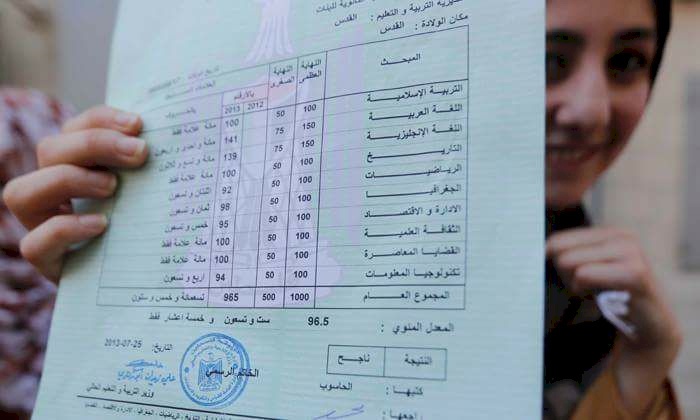 مديرية التربية و التعليم : القدس
مكان الولادة : القدس
المبحث النهاية العظمى النهاية الصغرى بالأرقام 2012 2013 بالحروف
التربية الإسلامية 100 50 100 مائة علامة فقط
اللغة العربية 150 75 141 مائة و احدى و اربعون
اللغة الإنجليزية 150 75 139 مائة و تسع و ثلاثون
التاريخ 100 50 100 مائة علامة فقط
الرياضيات 100 50 92 اثنتان و تسعون
الجغرافيا 100 50 98 ثمان و تسعون
الادارة و الاقتصاد 100 50 95 خمس و تسعون
الثقافة العلمية 100 50 100 مائة علامة فقط
القضايا المعاصرة 100 50 100 مائة علامة فقط
تكنولوجيا المعلومات 100 50 94 اربع و تسعون
المجموع العام 1000 500 965 تسعمائة و خمس و ستون
المعدل المئوي : 96.5 ست و تسعون و خمسة اعشار فقط
النتيجة ناجح
التاريخ: 25-07-2013
الختم الرسمي
كتبها : الحاسوب
وزير التربية و التعليم العالي
راجعها :